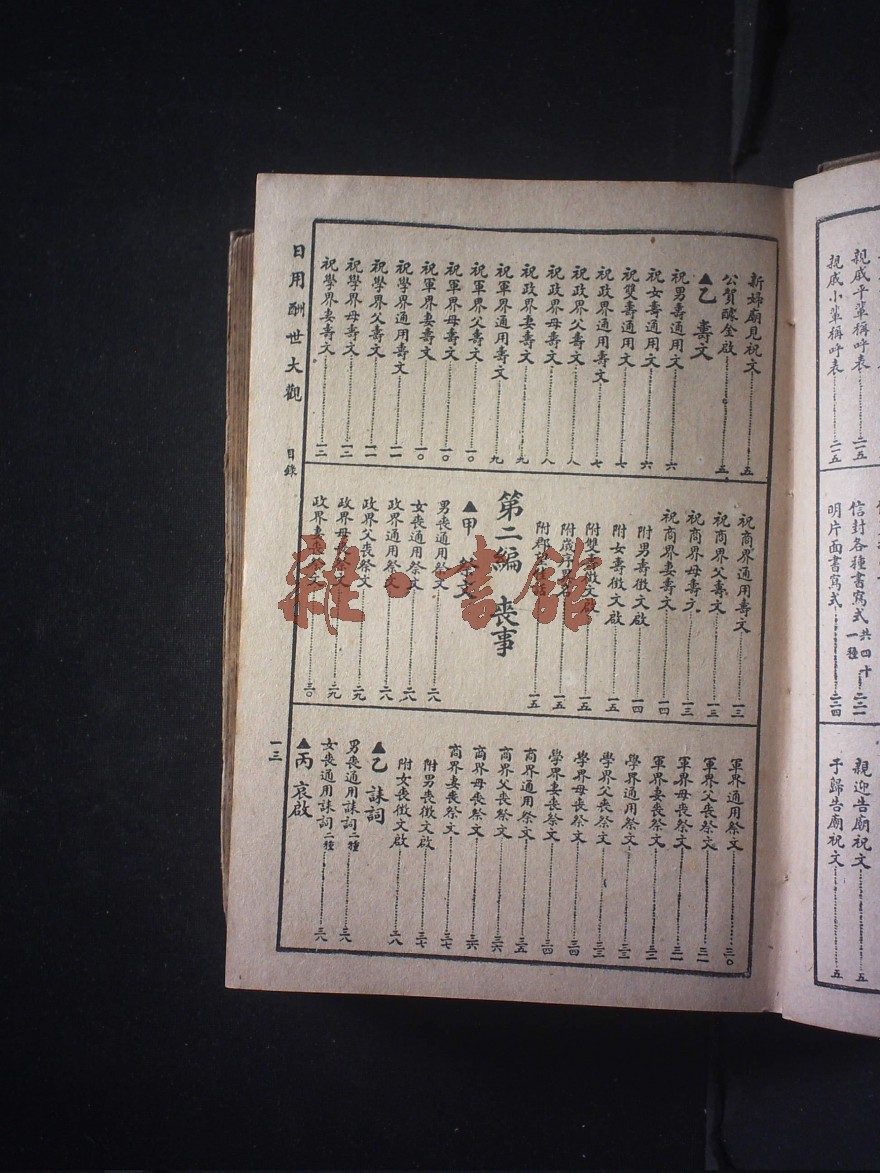 親戚平輩稱呼表 二一五
親戚小輩稱呼表 二一五
信封各種書寫式 共四十一種 二二一
明片面書寫式 二二四
親迎告廟祝文 五
于歸告廟祝文 五
新婦廟見祝文 五
公賀醵金啟 五
▲乙 壽文
祝男壽通用文 六
祝女壽通用文 六
祝雙壽通用文 七
祝政界通用壽文 七
祝政界父壽文 八
祝政界母壽文 八
祝政界妻壽文 九
祝軍界通用壽文 九
祝軍界父壽文 一〇
祝軍界母壽文 一〇
祝軍界妻壽文 一〇
祝學界通用壽文 一一
祝學界父壽文 一一
祝學界母壽文 一二
祝學界妻壽文 一二
祝商界通用壽文 一三
祝商界父壽文 一三
祝商界母壽文 一三
祝商界妻壽文 一四
附男壽徵文啟 一四
附女壽徵文啟 一五
附雙壽徵文啟 一五
一五
一五
第二編 喪事
▲甲 祭文
男喪通用祭文 二八
女喪通用祭文 二八
政界通用祭文 二八
政界父喪祭文 二九
政界母喪祭文 二九
政界妻喪祭文 三〇
軍界通用祭文 三〇
軍界父喪祭文 三一
軍界母喪祭文 三一
軍界妻喪祭文 三二
學界通用祭文 三三
學界父喪祭文 三三
學界母喪祭文 三四
學界妻喪祭文 三四
商界通用祭文 三五
商界父喪祭文 三六
商界母喪祭文 三六
商界妻喪祭文 三七
附男喪徵文啟 三七
附女喪徵文啟 三八
▲乙 誄詞
男喪通用誄詞 二種 三八
女喪通用誄詞 二種 三八
▲丙 哀啟
日用酬世大觀 目錄
一三
雜·書館